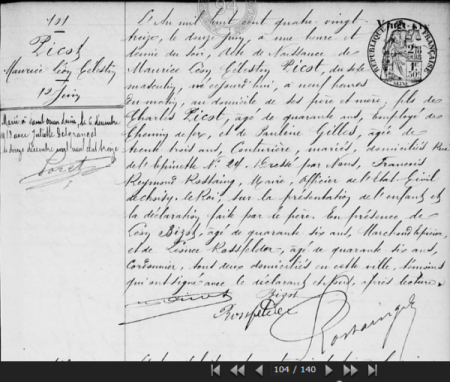 101
Picot
Maurice Léon Célestin
1er Juin
Marié à
le 6 décembre
1913 avec Juliette
L'An mil huit cent quatre vingt
treize, le deux Juin, à une heure et
demie du soir, Acte de Naissance de
Maurice Léon Célestin Picot, du sexe
masculin, né aujourd'hui, à neuf heures
du matin, au domicile de ses père et mère; fils de
Charles Picot, âgé de quarante ans, employé de
Chemin de fer, et de Pauline Gilles, âgée de
trente trois ans, Couturière, mariés, domiciliés Rue
de l'Epinette No 24. Dressé par Nous, François
Reymond Rossaing, Maire, Officier de l'Etat Civil
de Choisy-le-Roi, sur la présentation de l'enfant et
la déclaration faite par le père. En présence de
Léon Bizot, âgé de quarante six ans, Marchand épicier,
et de Rossfelder, âgé de quarante six ans,
Cordonnier, tous deux domiciliés en cette ville, témoins
qui ont signé avec le déclarant et Nous, après lecture.
Picot
Bizot
Rossfelder
Rossaing
REPUBLIQUE FRANÇAISE
104 / 140